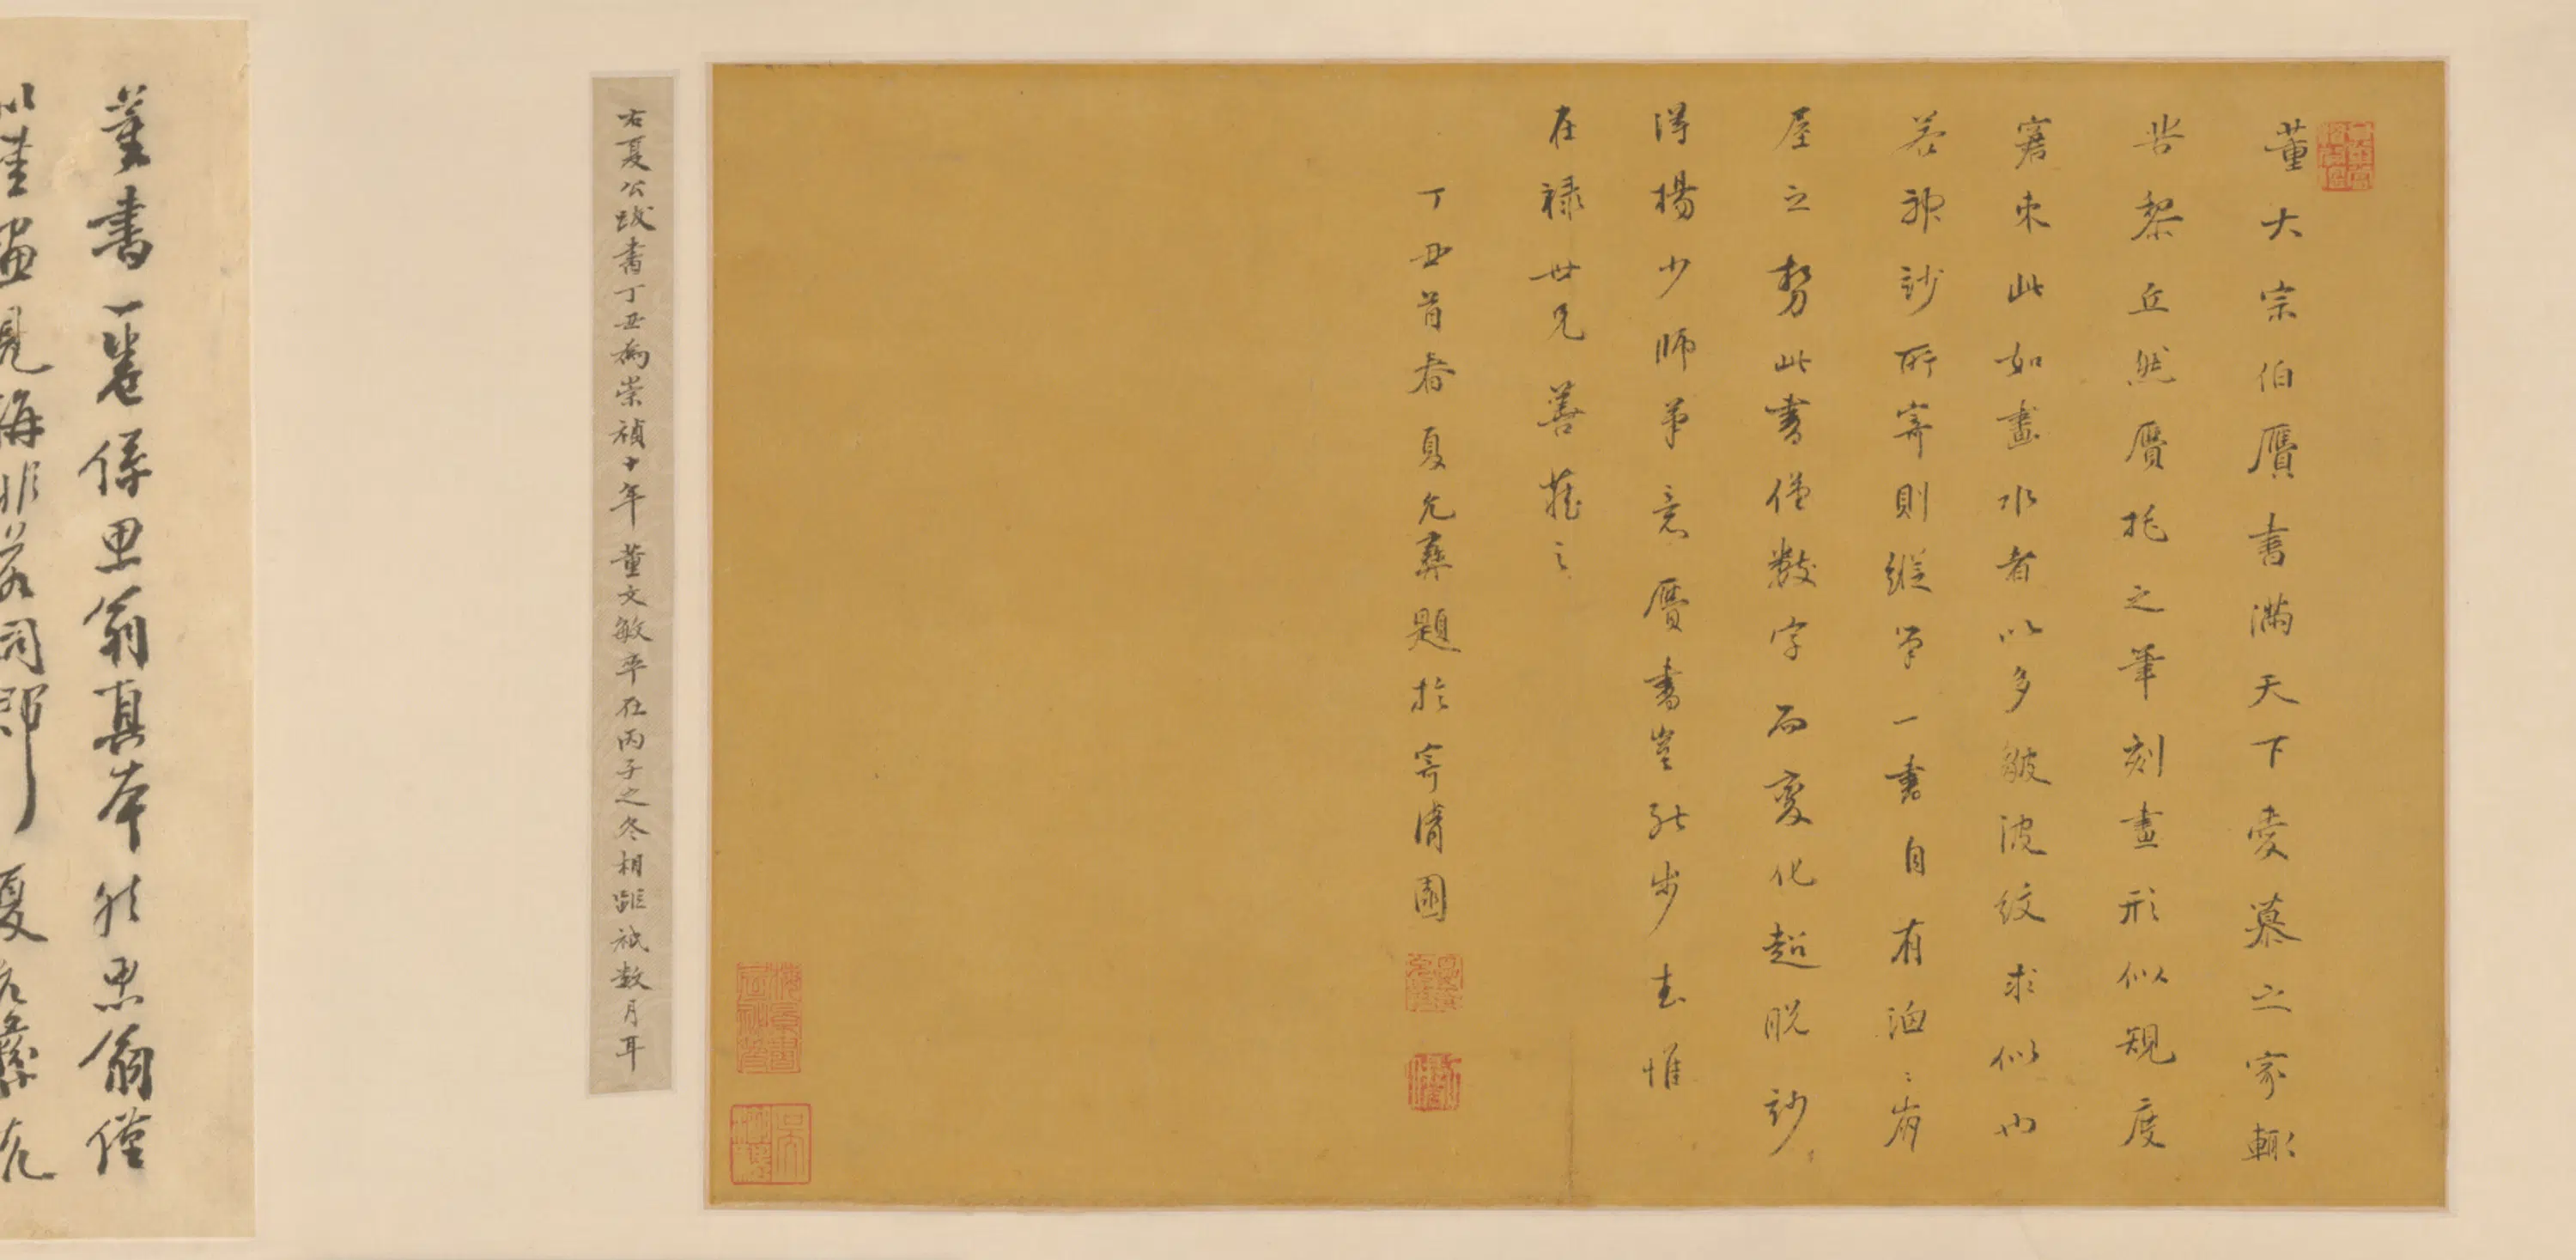 董大宗伯贋書滿天下愛慕之家輒
苦黎丘然贋托之筆刻畫形似規度
窘束此如畫水者以多皴波紋求似也
若神玅所寄則縱筆一書自有洄洄崩
屋之勢此書僅數字而變化超脫玅
得楊少師筆意贋書豈能步走惟
在祿世兄善藏之
丁丑首春夏允彝題於寄清園
右夏公跋書丁丑為崇禎十年董文敏卒在丙子之冬相距祇数月耳
董書一卷係思翁真本然思翁僅
以書畫見海非若同郡夏允彝